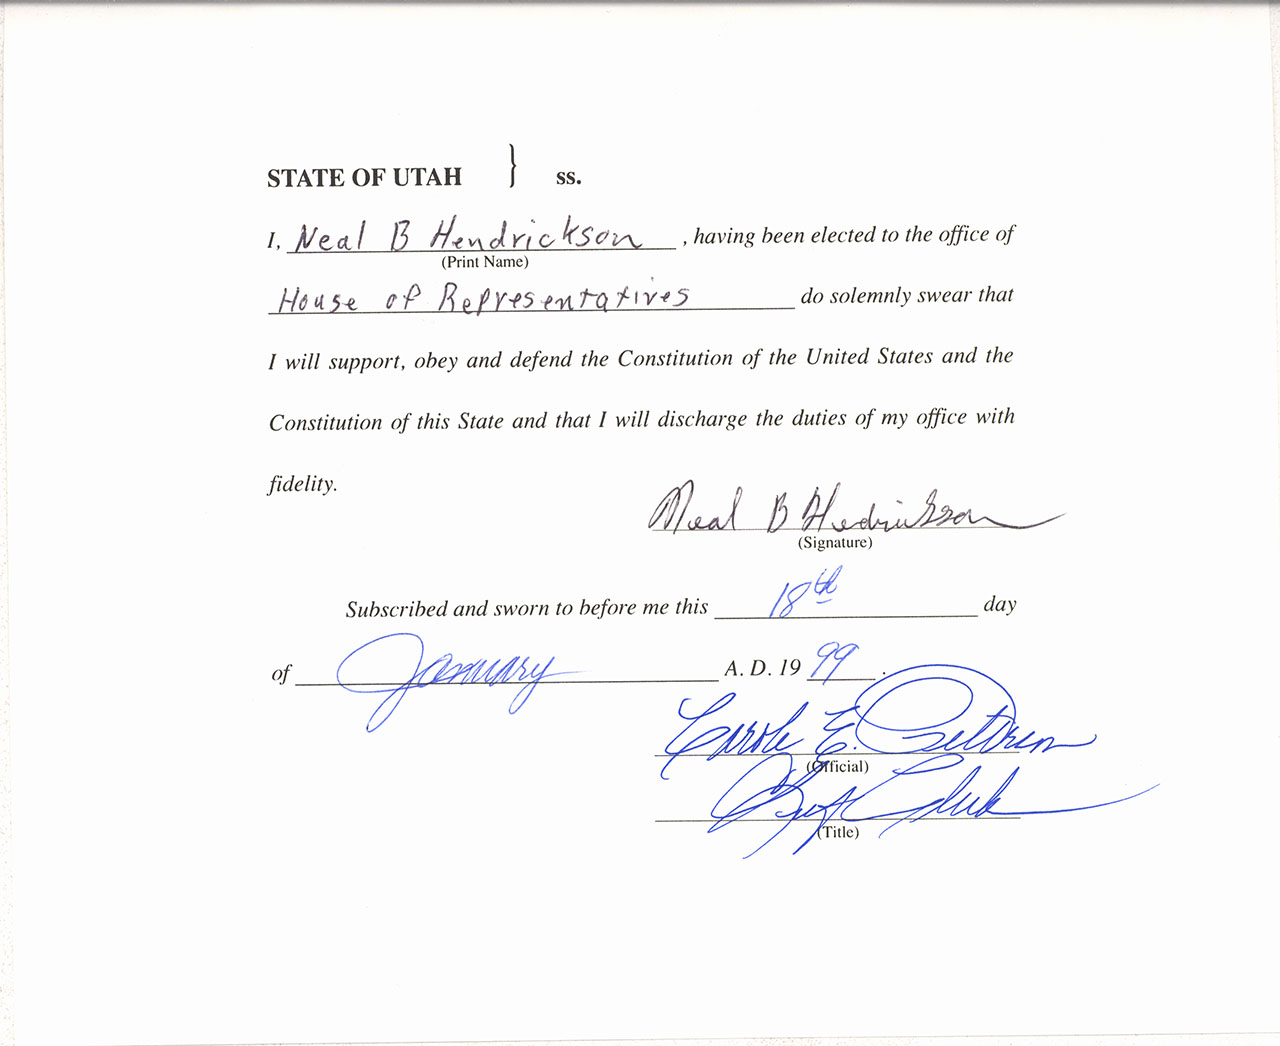 STATE OF UTAH } ss.
I, Neal B Hendrickson , having been elected to the office of
(Print Name)
House of Representatives do solemnly swear that
I will support, obey and defend the Constitution of the United States and the
Constitution of this State and that I will discharge the duties of my office with
fidelity.
Neal B Hendrickson
(Signature)
Subscribed and sworn to before me this 18th day
of January A. D. 19 99 .
Carole E.
(Official)
Clerk
(Title)